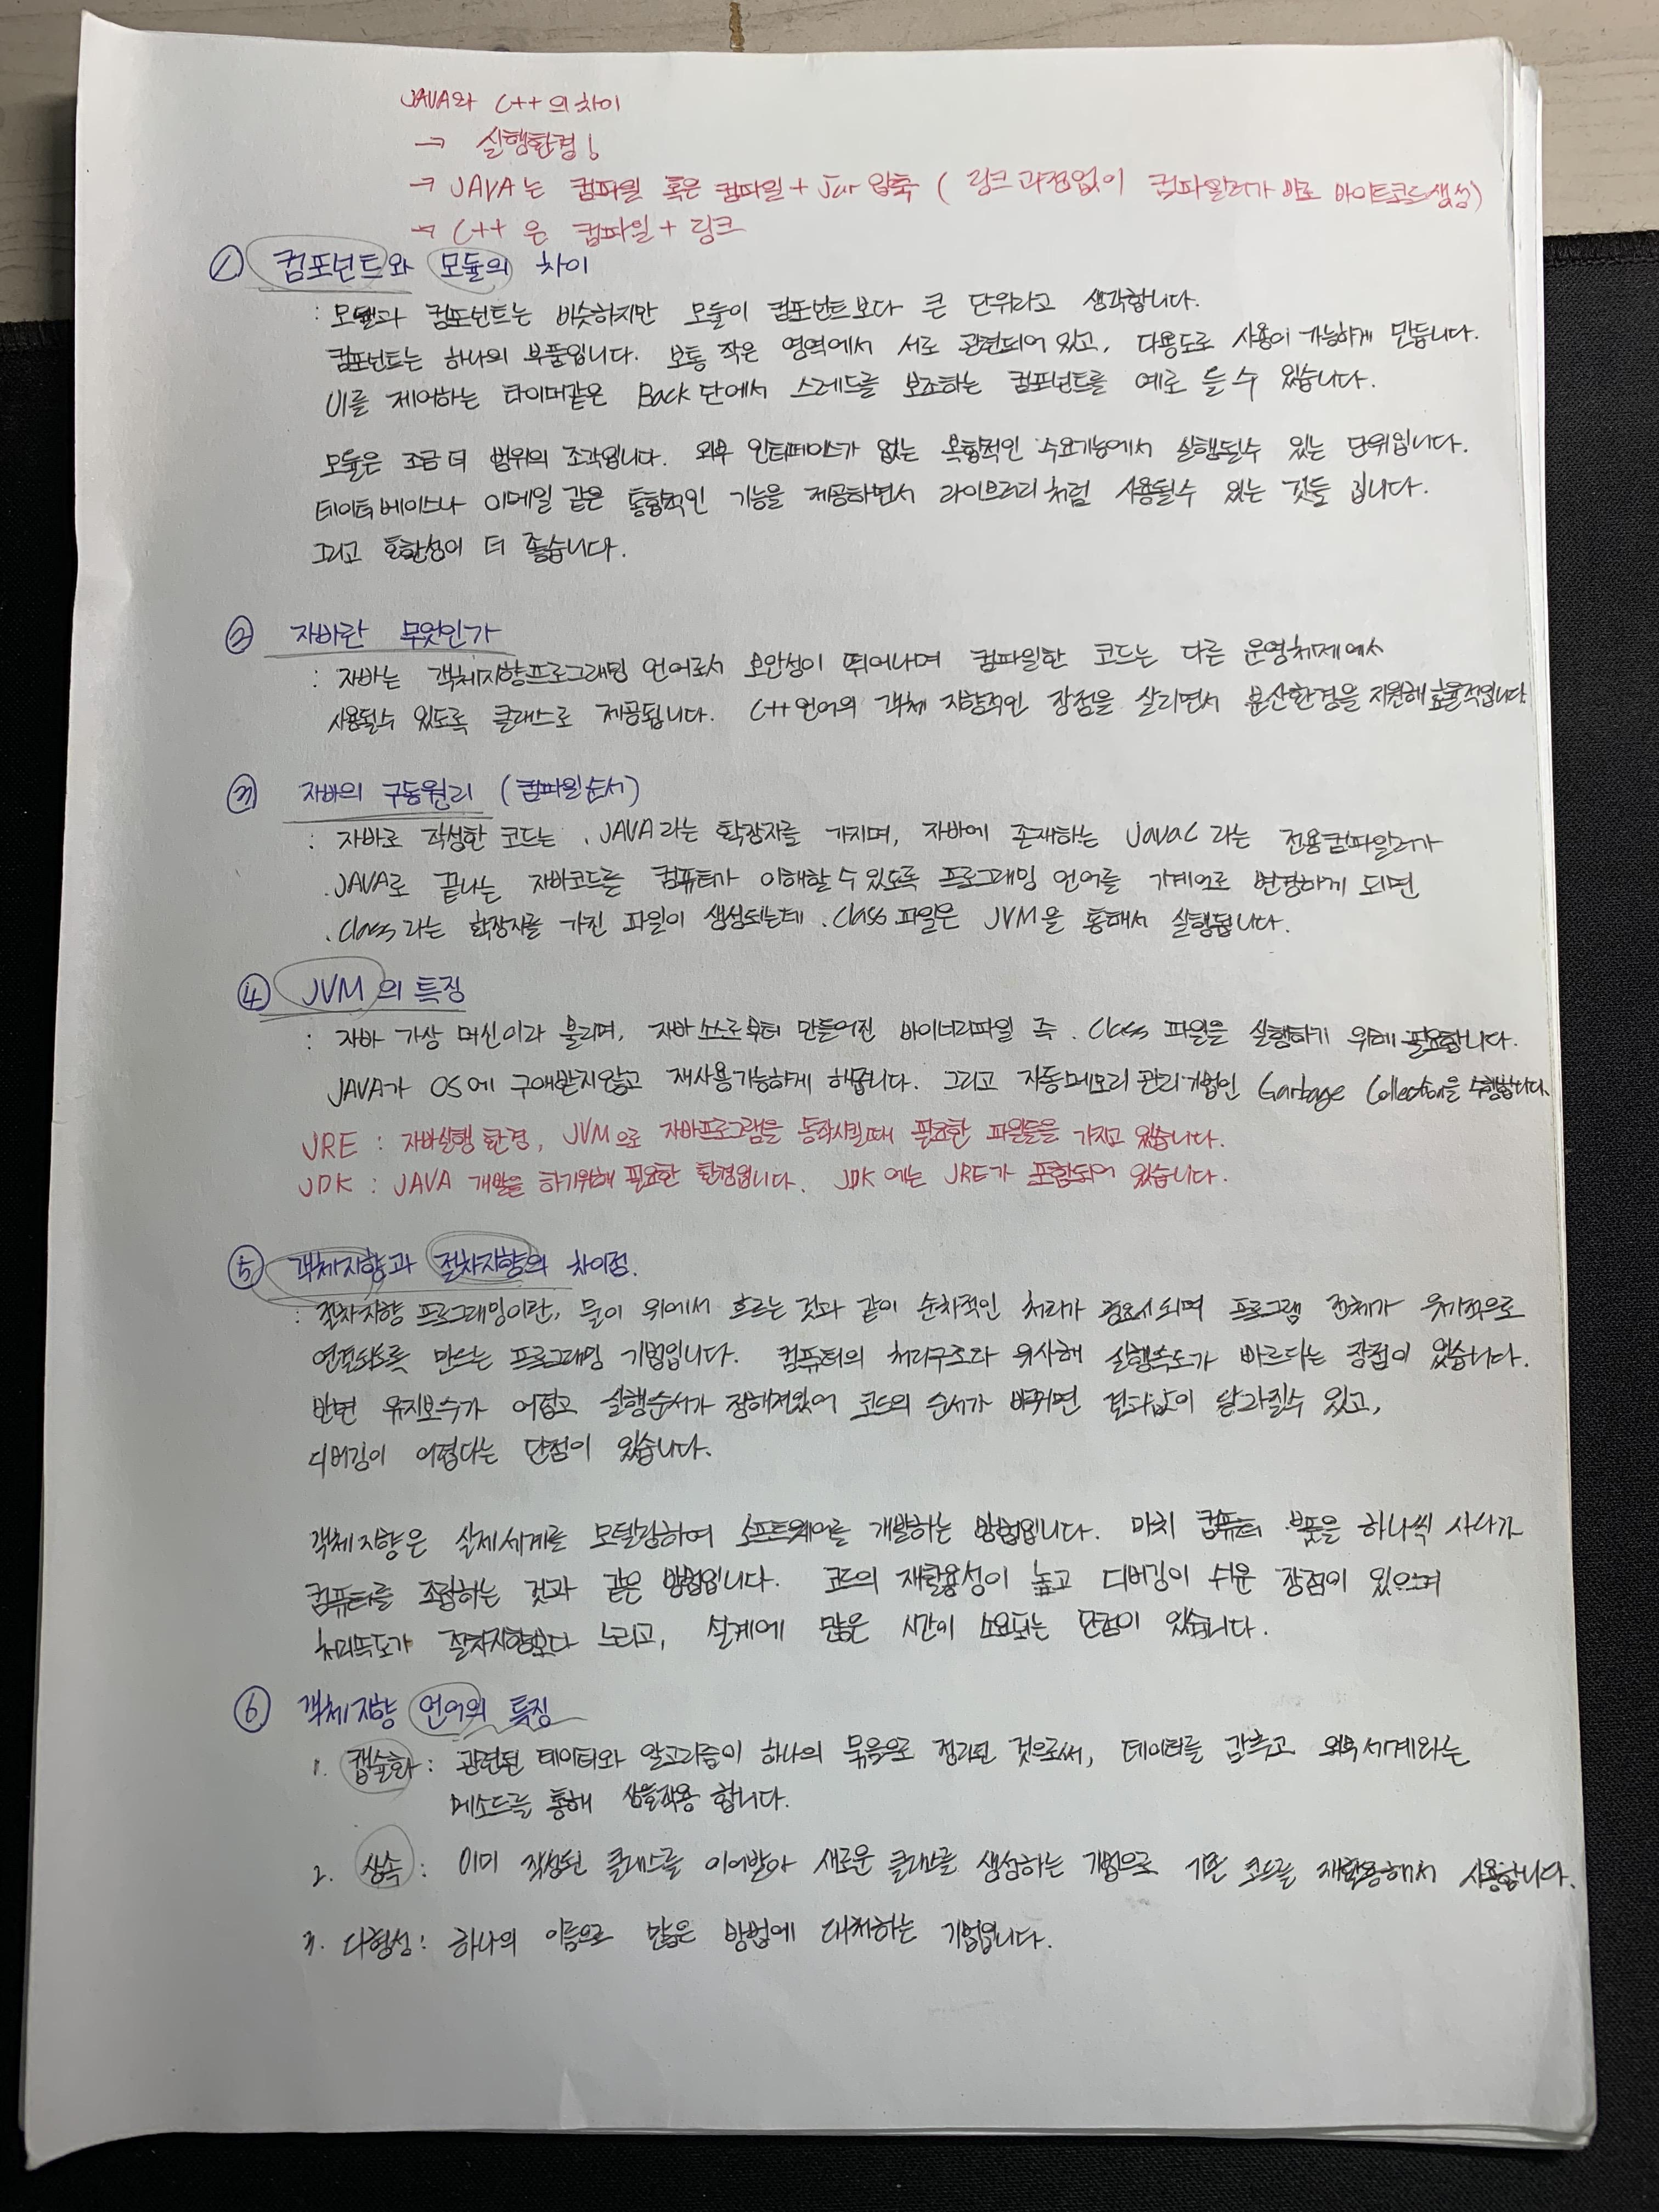 JAVA와 C++의 차이
→ 실행환경!
→ JAVA는 컴파일 혹은 컴파일 + Jar 압축 ( 링크 과정없이 컴파일러가 바로 바이트코드생성)
→ C++ 은 컴파일 + 링크
① 컴포넌트와 모듈의 차이
: 모듈과 컴포넌트는 비슷하지만 모듈이 컴포넌트보다 큰 단위라고 생각합니다.
컴포넌트는 하나의 부품입니다. 보통 작은 영역에서 서로 관련되어 있고, 다용도로 사용이 가능하게 만듭니다.
UI를 제어하는 타이머같은 Back 단에서 스레드를 보조하는 컴포넌트를 예로 들 수 있습니다.
모듈은 조금 더 범위의 조각입니다. 외부 인터페이스가 없는 복합적인 수요기능에서 실행될수 있는 단위입니다.
데이터베이스나 이메일 같은 통합적인 기능을 제공하면서 라이브러리처럼 사용될수 있는 것들 입니다.
그리고 호환성이 더 좋습니다.
② 자바란 무엇인가
: 자바는 객체지향프로그래밍 언어로서 보안성이 뛰어나며 컴파일한 코드는 다른 운영체제에서
사용될수 있도록 클래스로 제공됩니다. C++언어의 객체 지향적인 장점을 살리면서 분산환경을 지원해 효율적입니다.
③ 자바의 구동원리 (컴파일순서)
: 자바로 작성한 코드는 .JAVA라는 확장자를 가지며, 자바에 존재하는 JavaC 라는 전용컴파일러가
.JAVA로 끝나는 자바코드를 컴퓨터가 이해할 수 있도록 프로그래밍 언어를 기계어로 변경하게 되면
.Class 라는 확장자를 가진 파일이 생성되는데 .Class 파일은 JVM을 통해서 실행됩니다.
④ JVM의 특징
: 자바 가상 머신이라 불리며, 자바 소스로부터 만들어진 바이너리파일 즉 .Class 파일을 실행하기 위해 필요합니다.
JAVA가 OS에 구애받지않고 재사용가능하게 해줍니다. 그리고 자동메모리 관리기법인 Garbage Collection을 수행합니다.
JRE : 자바실행 환경, JVM으로 자바프로그램을 동작시킬때 필요한 파일들을 가지고 있습니다.
JDK : JAVA 개발을 하기위해 필요한 환경입니다. JDK에는 JRE가 포함되어 있습니다.
⑤ 객체지향과 절차지향의 차이점.
: 절차지향 프로그래밍이란, 물이 위에서 흐르는 것과 같이 순차적인 처리가 중요시 되며 프로그램 전체가 유기적으로
연결되도록 만드는 프로그래밍 기법입니다. 컴퓨터의 처리구조와 유사해 실행속도가 빠르다는 장점이 있습니다.
반면 유지보수가 어렵고 실행순서가 정해져있어 코드의 순서가 바뀌면 결과값이 달라질수 있고,
디버깅이 어렵다는 단점이 있습니다.
객체지향은 실제세계를 모델링하여 소프트웨어를 개발하는 방법입니다. 마치 컴퓨터 부품을 하나씩 사다가
컴퓨터를 조립하는 것과 같은 방법입니다. 코드의 재활용성이 높고 디버깅이 쉬운 장점이 있으며
처리속도가 절차지향보다 느리고, 설계에 많은 시간이 소요되는 단점이 있습니다.
⑥ 객체지향 언어의 특징
1. 캡슐화 : 관련된 데이터와 알고리즘이 하나의 묶음으로 정리된 것으로써, 데이터를 감추고 외부세계와는
메소드를 통해 상호작용 합니다.
2. 상속 : 이미 작성된 클래스를 이어받아 새로운 클래스를 생성하는 기법으로 기존 코드를 재활용해서 사용합니다.
3. 다형성 : 하나의 이름으로 많은 방법에 대처하는 기법입니다.